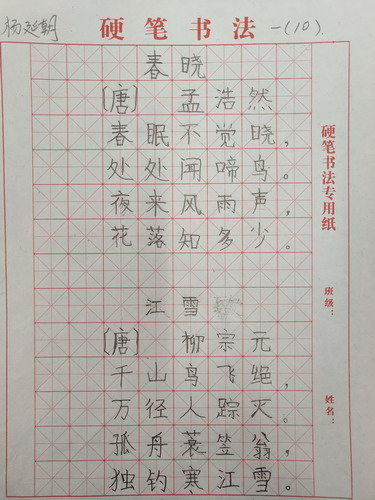 杨延朝 硬笔书法 一(10)
春晓
[唐] 孟浩然
春眠不觉晓，
处处闻啼鸟。
夜来风雨声，
花落知多少。
江雪
[唐] 柳宗元
千山鸟飞绝，
万径人踪灭。
孤舟蓑笠翁，
独钓寒江雪。
硬笔书法专用纸
班级：
姓名：